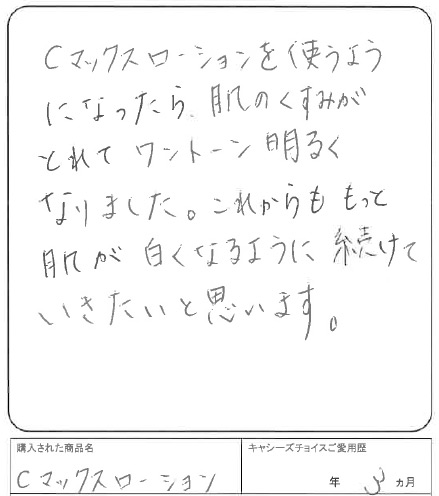 Cマックスローションを使うよう
になったら、肌のくすみが
とれて ワントーン 明るく
なりました。これからも もっと
肌が 白くなるように 続けて
いきたいと思います。
購入された商品名
Cマックスローション
キャシーズチョイスご愛用歴
年 3 ヵ月